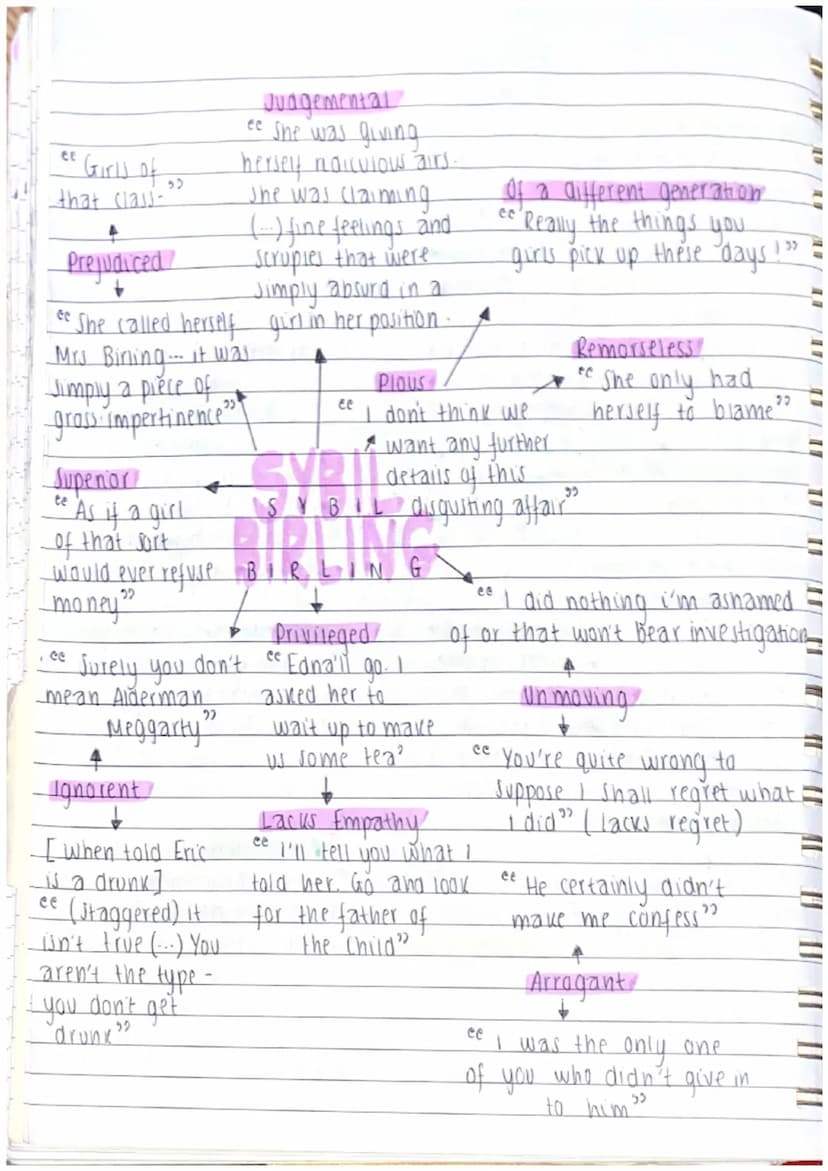 Judgemental
“ She was giving
herself ridiculous airs.
She was claiming
(...) fine feelings and
scruples that were
simply absurd in a
girl in her position.
“ Girls of
that class- ”
Prejudiced
“ She called herself
Mrs Birling... it was
simply a piece of
gross impertinence”
Of a different generation
“ Really the things you
girls pick up these days!”
Remorseless
“ She only had
herself to blame”
Pious
“ I don't think we
want any further
details of this
disgusting affair”
SYBIL
SYBIL
BIRLING
BIRLING
Superior
“ As if a girl
of that sort
would ever refuse
money”
“ I did nothing i'm ashamed
of or that won't bear investigation
Unmoving
“ You're quite wrong to
suppose I shall regret what
I did” (lacks regret)
Privileged
“ Edna'll go. I
asked her to
wait up to make
us some tea’
Lacks Empathy
“ I'll tell you what I
told her. Go and look
for the father of
the child”
“ Surely you don't
mean Alderman
Meggarty”
Ignorent
[When told Eric
is a drunk]
“ (Staggered) it
isn't true (...) You
aren't the type -
you don't get
drunk”
“ He certainly didn't
make me confess”
Arrogant
“ I was the only one
of you who didn't give in
to him”